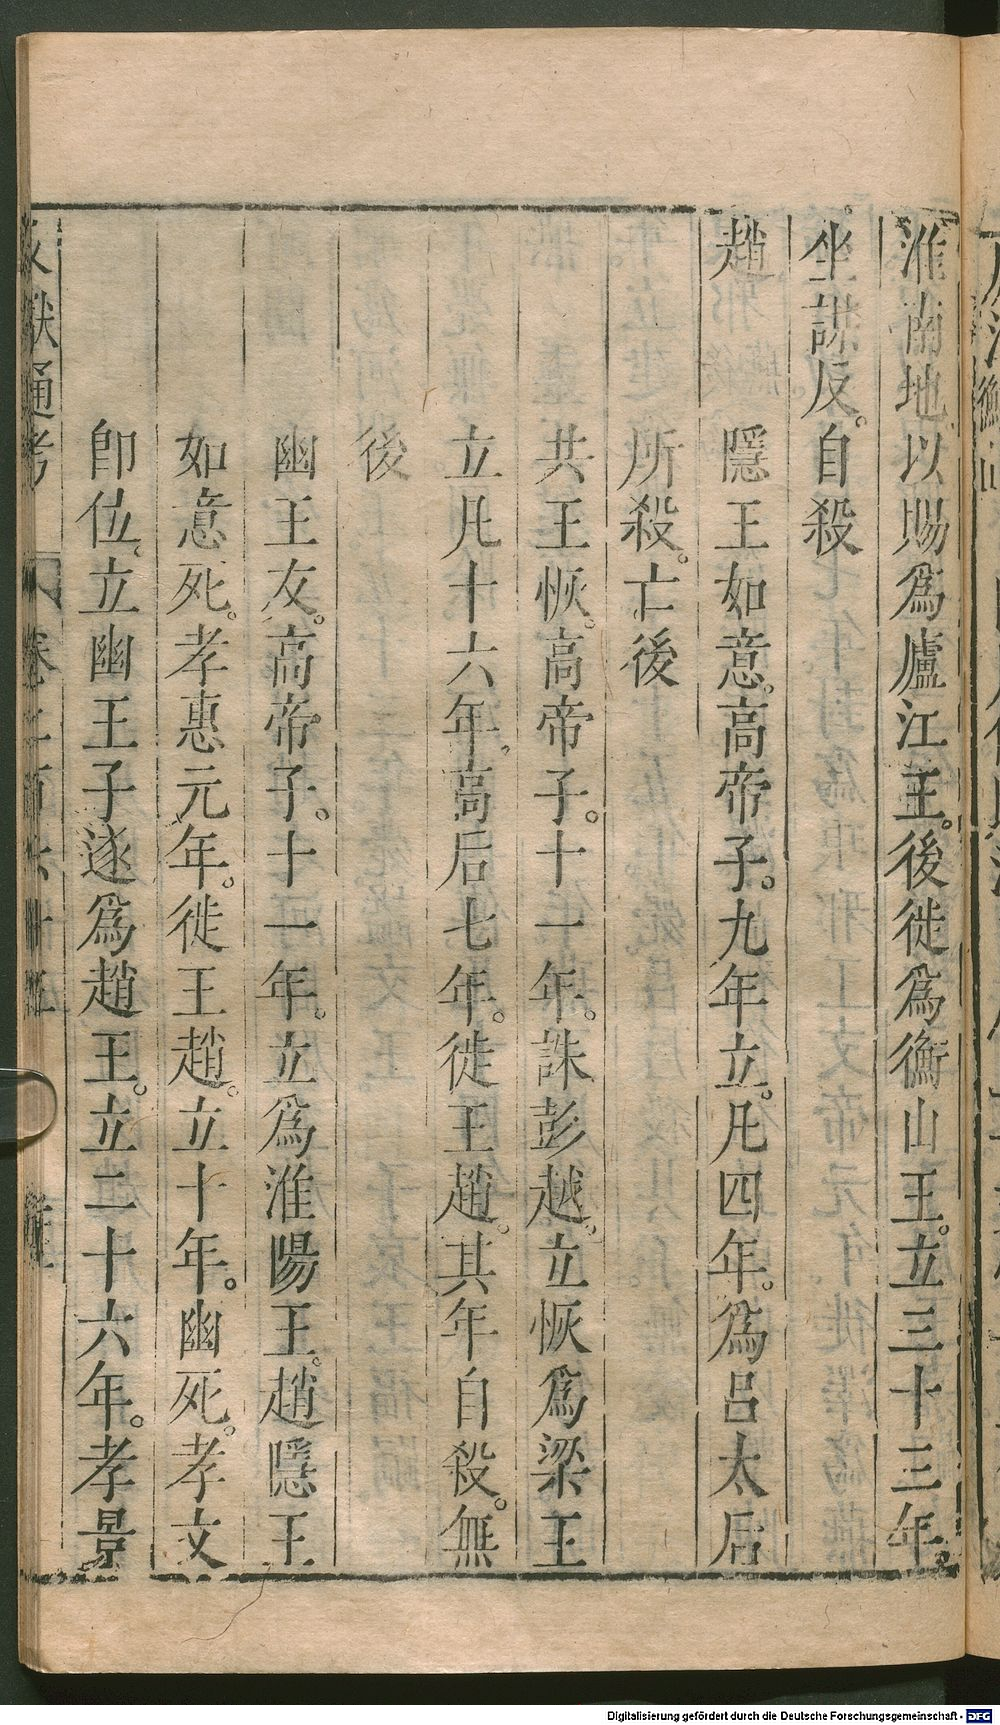 淮南地以賜爲廬江王。後徙爲衡山王。立三十三年。
坐謀反。自殺
趙 隱王如意。高帝子。九年立。凡四年。爲呂太后
所殺。亡後
共王恢。高帝子。十一年。誅彭越。立恢爲梁王
立凡十六年。高后七年。徙王趙。其年自殺。無
後
幽王友。高帝子。十一年。立爲淮陽王。趙隱王
如意死。孝惠元年。徙王趙。立十年。幽死。孝文
卽位。立幽王子遂爲趙王。立二十六年。孝景
文獻通考 卷二百六十
Digitalisierung gefördert durch die Deutsche Forschungsgemeinschaft - DFG